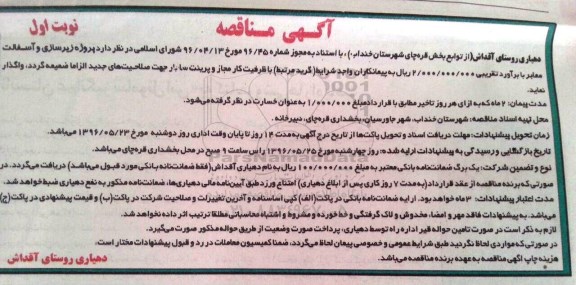 آگهی مناقصه
نوبت اول
دهیاری روستای آقداش(از توابع بخش قره‌چای شهرستان خنداب)، با استناد به مجوز شماره ۹۶/۴۵ مورخ ۹۶/۰۴/۱۳ شورای اسلامی در نظر دارد پروژه زیرسازی و آسفالت
معابر با برآورد تقریبی ۲/۰۰۰/۰۰۰/۰۰۰ ریال به پیمانکاران واجد شرایط(گرید مرتبط) با ظرفیت کار مجاز و پرینت سایت جهت صلاحیت‌های جدید الزاما ضمیمه گردد، واگذار
نماید.
مدت پیمان: ۲ ماه که به ازای هر روز تاخیر مطابق با قرارداد مبلغ ۱/۰۰۰/۰۰۰ به عنوان خسارت در نظر گرفته می‌شود.
محل تهیه اسناد مناقصه: شهرستان خنداب، شهر جاورسیان، بخشداری قره‌چای، دبیرخانه.
زمان تحویل پیشنهادات: مهلت دریافت اسناد و تحویل پاکت‌ها از تاریخ درج آگهی به مدت ۱۴ روز تا پایان وقت اداری روز دوشنبه مورخ ۱۳۹۶/۰۵/۲۳ می‌باشد.
تاریخ بازگشایی و رسیدگی به پیشنهادات ارایه شده: روز چهارشنبه مورخ ۱۳۹۶/۰۵/۲۵ ساعت ۹ صبح در محل بخشداری قره‌چای می‌باشد.
نوع و تضمین شرکت: یک برگ ضمانت‌نامه بانکی معتبر به مبلغ ۱۰۰/۰۰۰/۰۰۰ ریال به نام دهیاری آقداش(فقط ضمانت‌نامه بانکی مورد قبول می‌باشد) دریافت می‌گردد. در
صورتی که برنده مناقصه از عقد قرارداد(به مدت ۷ روز کاری پس از ابلاغ دهیاری) امتناع ورزد طبق آیین‌نامه مالی دهیاری‌ها، ضمانت‌نامه مذکور به نفع دهیاری ضبط خواهد شد.
مدت اعتبار پیشنهادات: ۳ ماه خواهد بود. ارایه ضمانت‌نامه بانکی در پاکت(الف) کپی اساسنامه و آخرین تغییرات و صلاحیت شرکت در پاکت(ب) و قیمت پیشنهادی در پاکت(ج)
می‌باشد. به پیشنهادات فاقد مهر و امضا، مخدوش و لاک گرفتگی و خط خورده و مشروط و اشتباه محاسباتی مطلقا ترتیب اثر داده نخواهد شد.
لازم به ذکر است در صورت تامین حواله قیر اداره راه توسط دهیاری، پرداخت صورت وضعیت از طریق حواله مذکور صورت می‌گیرد.
در صورتی که مواردی لحاظ نگردید طبق شرایط عمومی و خصوصی پیمان لحاظ می‌گردد، ضمنا کمیسیون معاملات در رد و قبول پیشنهادات مختار است.
هزینه چاپ آگهی مناقصه به عهده برنده مناقصه می‌باشد.
دهیاری روستای آقداش